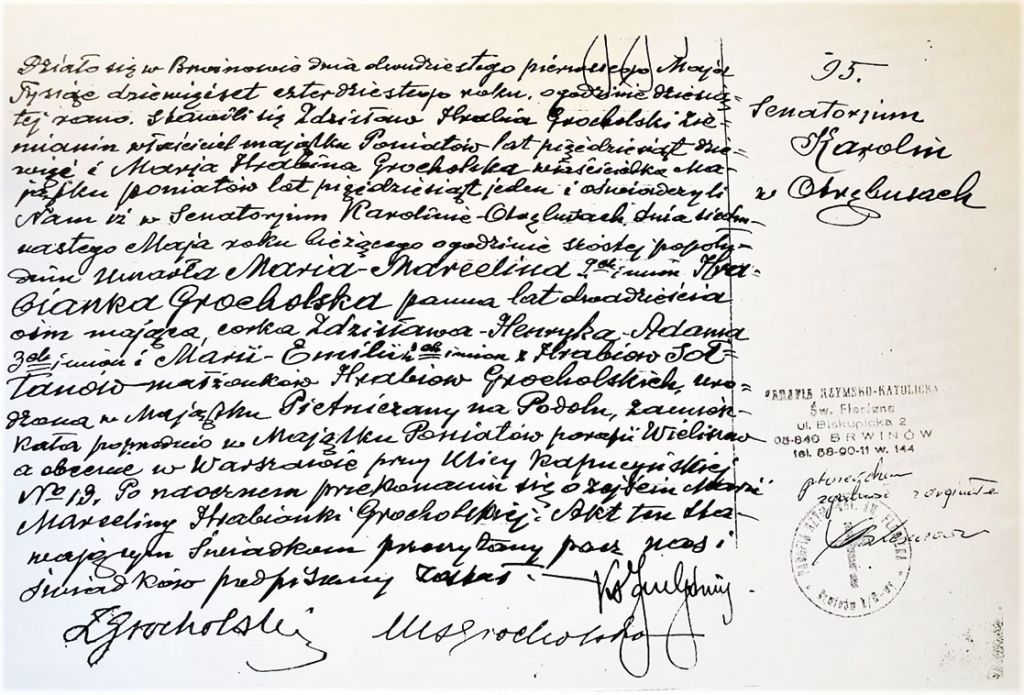 Działo się w Brwinowie dnia dwudziestego pierwszego Maja
Tysiąc dziewięćset czterdziestego roku, o godzinie dziesią=
tej rano. Stawili się Zdzisław Hrabia Grocholski Zie=
mianin właściciel majątku Poniatów lat pięćdziesiąt dzie=
więć i Marja Hrabina Grocholska właścicielka Ma=
jątku poniatów lat pięćdziesiąt jeden i oświadczyli
Nam iż w Senatorjum Karolinie-Otrębusach dnia siedm=
nastego Maja roku bieżącego o godzinie szóstej popołu=
dniu umarła Maria-Marcelina 2ga imion Hra=
bianka Grocholska panna lat dwadzieścia
ośm mająca, córka Zdzisława-Henryka-Adama
3ch imion i Marii-Emilii 2ch imion z Hrabiów Soł=
tanów małżonków Hrabiów Grocholskich, uro=
dzona w Majątku Pietniczany na Podolu, zamiesz=
kała poprzednio w Majątku Poniatów parafii Wieliszew
a obecnie w Warszawie przy Ulicy Kapucyńskiej
No 13. Po naocznem przekonaniu się o zejściu Marii
Marceliny Hrabianki Grocholskiej. Akt ten sta=
wającym Świadkom przeczytany przez nas i
świadków podpisany został.
ZGrocholski
MGrocholska
95.
Senatorjum
Karolin
w Otrębusach
PARAFIA RZYMSKO-KATOLICKA
Św. Floriana
ul. Biskupicka 2
05-840 BRWINÓW
tel. 58-90-11 w. 144
zgodność z oryginałem